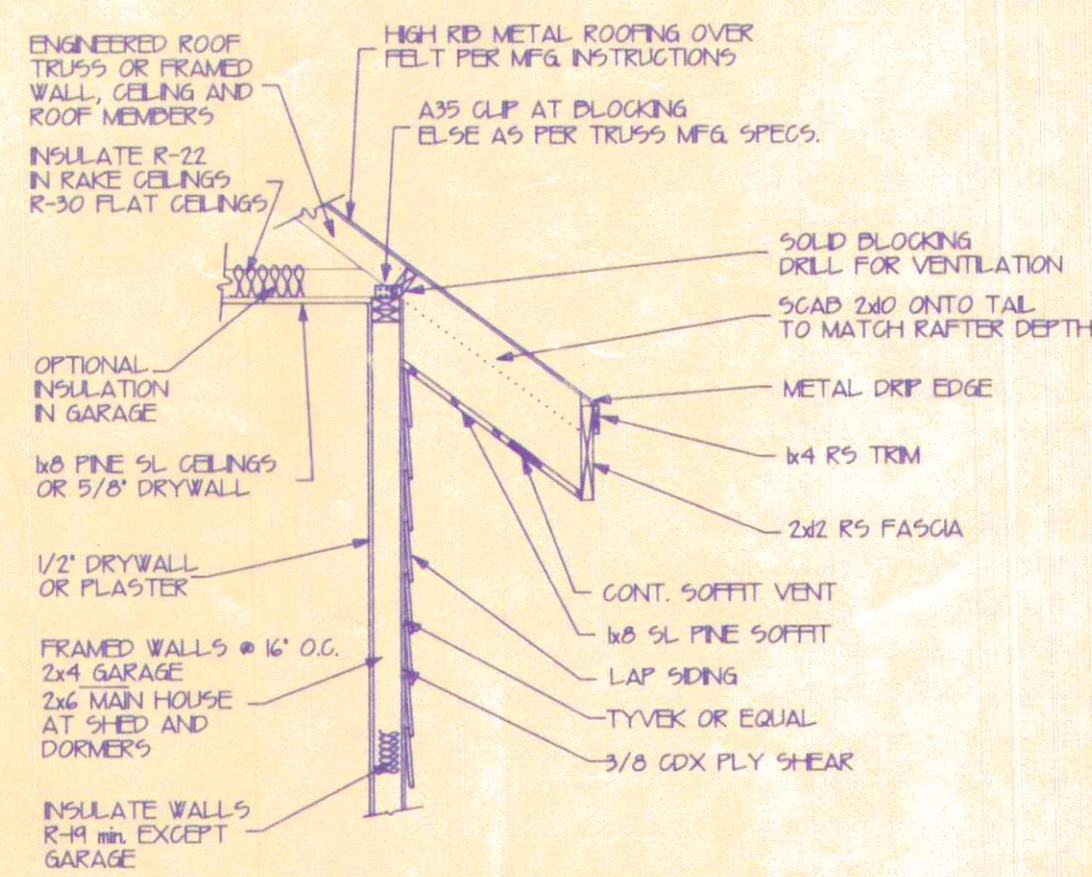 ENGINEERED ROOF
TRUSS OR FRAMED
WALL, CEILING AND
ROOF MEMBERS
INSULATE R-22
IN RAKE CEILINGS
R-30 FLAT CEILINGS
OPTIONAL
INSULATION
IN GARAGE
1x8 PINE SL CEILINGS
OR 5/8" DRYWALL
1/2" DRYWALL
OR PLASTER
FRAMED WALLS @ 16" O.C.
2x4 GARAGE
2x6 MAIN HOUSE
AT SHED AND
DORMERS
INSULATE WALLS
R-19 min. EXCEPT
GARAGE
HIGH RIB METAL ROOFING OVER
FELT PER MFG. INSTRUCTIONS
A35 CLIP AT BLOCKING
ELSE AS PER TRUSS MFG. SPECS.
SOLID BLOCKING
DRILL FOR VENTILATION
SCAB 2x10 ONTO TAIL
TO MATCH RAFTER DEPTH
METAL DRIP EDGE
1x4 RS TRIM
2x12 RS FASCIA
CONT. SOFFIT VENT
1x8 SL PINE SOFFIT
LAP SIDING
TYVEK OR EQUAL
3/8 CDX PLY SHEAR